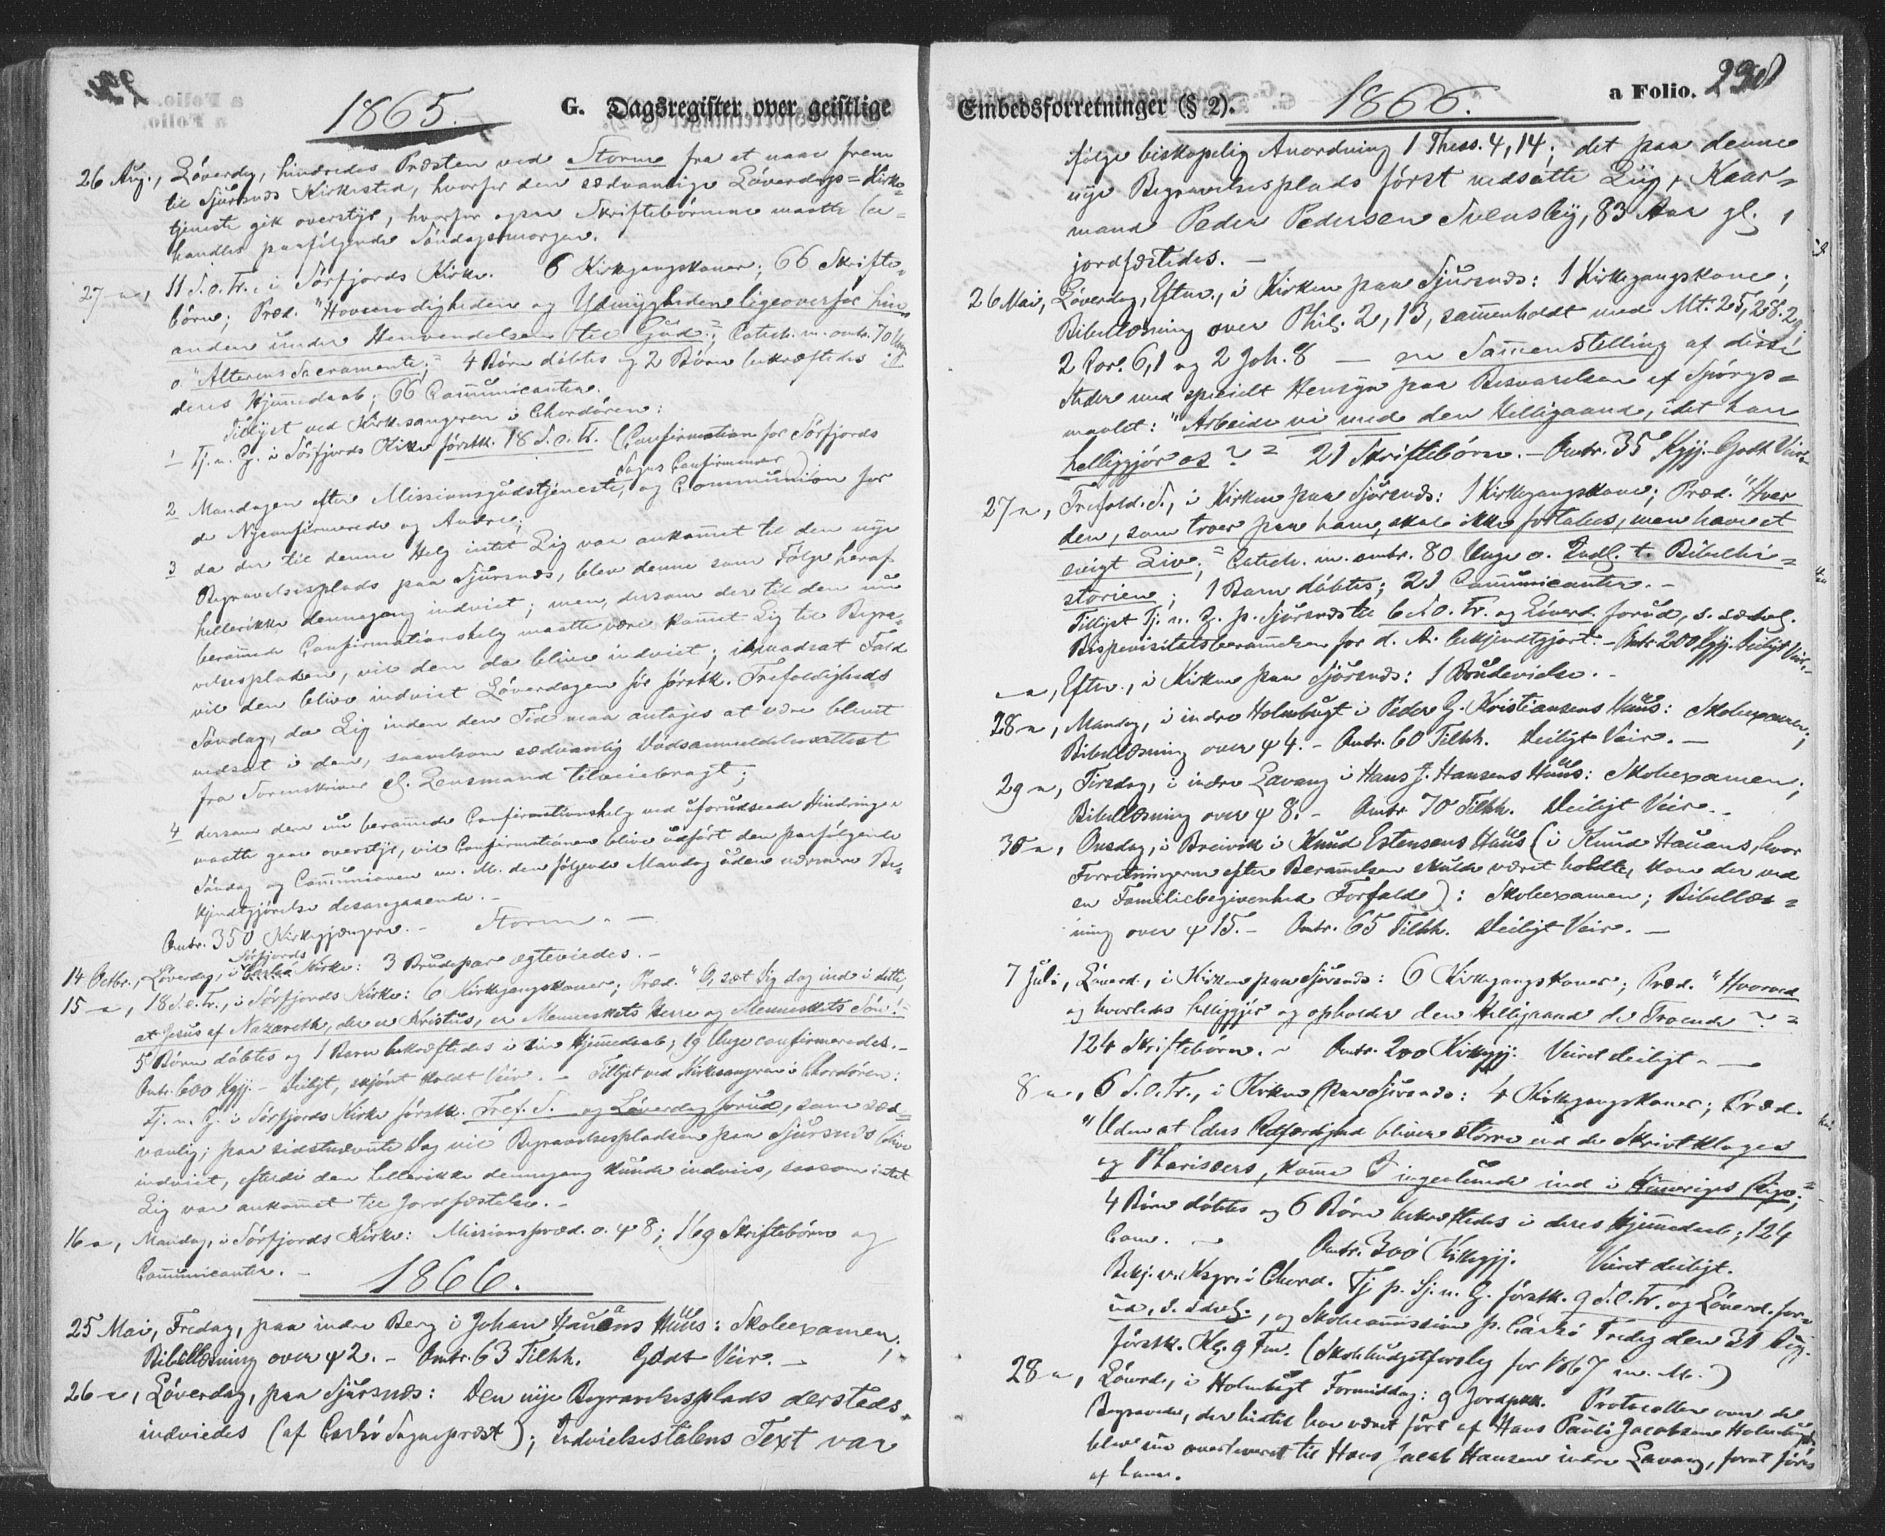 1865.
G. Dagsregister over geistlige
26 Aug., Löverdag, hindredes Præsten ved Storm fra at naae frem
til Sjursnæs Kirkested, hvorfor den sædvanlige Löverdags-Kirke-
tjeneste gik overstyr, hvorfor ogsaa Skriftebörnene maatte be-
handles paafölgende Söndagsmorgen.
27 -, 11 S.e.Tr., i Sörfjords Kirke. 6 Kirkegangskoner; 66 Skrifte-
börn; Præd. "Hovmodigheden og Ydmygheden ligeoverfor hin-
anden under Henvendelsen til Gud"; Catech. m. omtr. 70 Unge
o. "Alterens Sacramente." 4 Börn döbtes og 2 Börn bekræftedes i
deres Hjemmedaab; 66 Communicanter.
Tillyst ved Kirkesangeren i Chordören:
1 Tj. n. G. i Sörfjords Kirke förstk. 18 S.e.Tr. (Confirmation for Sörfjords
Sogns Confirmender)
2 Mandagen efter Missionsgudstjeneste, og Communion for
de Nyconfirmerede og Andre;
3 da der til denne Helg intet Lig var ankommet til den nye
Begravelsesplads paa Sjursnæs, blev denne som Fölge heraf
hellerikke dennegang indviet; men, dersom der til den nu
berammede Confirmationshelg maatte være kommet Lig til Begra-
velsespladsen, vil den da blive indviet; i modsat Fald
vil den blive indviet Löverdagen för förstk. Trefoldigheds
Söndag, da Lig inden den Tid maa antages at være blevet
nedsat i den, saavelsom sædvanlig Dödsanmeldelsesattest
fra Sorenskriver el. Lensmand tilveiebragt;
4 dersom den nu berammede Confirmationshelg ved uforudseede Hindringer
maatte gaae overstyr, vil Confirmationen blive udfört den paafölgende
Söndag og Communionen m. M. den fölgende Mandag uden nærmere Be-
kjendtgjörelse desangaaende. -
Omtr. 350 Kirkegjængere. - Storm. -
14 Octbr., Löverdag, i Sörfjords Kirke: 3 Brudepar ægteviedes. -
15 -, 18 S.e.Tr., i Sörfjords Kirke: 6 Kirkegangskoner; Præd. "O, sæt Dig dog ind i dette,
at Jesus af Nazareth, der er Kristus, er Menneskets Herre og Menneskets Sön!"
5 Börn döbtes og 1 Barn bekræftedes i sin Hjemmedaab; 19 Unge confirmeredes. -
Omtr. 600 Kgj. - Deiligt, skjönt koldt Veir. - Tillyst ved Kirkesangeren i Chordören:
Tj. n. G. i Sörfjords Kirke förstk. Tref. S. og Löverdag forud, som sæd-
vanlig; paa sidstnævnte Dag vil Begravelsespladsen paa Sjursnæs blive
indviet, efterdi den hellerikke dennegang kunde indvies, saasom intet
Lig var ankommet til Jordfæstelse. -
16 -, Mandag, i Sörfjords Kirke: Missionspræd. o. ψ 8; 169 Skriftebörn og
Communicanter. -
1866.
25 Mai, Fredag, paa indre Berg i Johan Hansens Huus: Skoleexamen;
Bibellæsning over ψ 2. - Omtr. 63 Tilhh. Godt Veir. -
26 -, Löverdag, paa Sjursnæs: Den nye Begravelsesplads dersteds
indviedes (af Carlsö Sognepræst); Indvielsestalens Text var
Embedsforretninger (§ 2).
1866.
a Folio. 230
ifölge biskopelig Anordning 1 Thess. 4, 14; det paa denne
nye Begravelsesplads först nedsatte Lig, Kaar-
mand Peder Pedersen Svensby, 83 Aar gl.,
jordfæstedes. -
26 Mai, Löverdag, Efterm., i Kirken paa Sjursnæs: 1 Kirkegangskone;
Bibellæsning over Phil. 2, 13, sammenholdt med Mt. 25, 28. 29
2 Cor. 6, 1 og 2 Joh. 8 - en Sammenstilling af disse
Steder med specielt Hensyn paa Besvarelsen af Spörgs-
maalet: "Arbeide vi med den Helligaand, idet han
helliggjör os?" 21 Skriftebörn. - Omtr. 35 Kgj. - Godt Veir
27 -, Trefold. S., i Kirken paa Sjursnæs: 1 Kirkegangskone; Præd. "Hver
den, som troer paa ham, skal ikke fortabes, men have et
evigt Liv;" Catech. m. omtr. 80 Unge o. Indl. t. Bibelhi-
storien; 1 Barn döbtes; 21 Communicanter. -
Tillyst Tj. n. G. p. Sjursnæs til 6 S.e.Tr. og Löverd. forud, s. sædvl.
Bispevisitatsberammelsen for d. A. bekjendtgjort. - Omtr. 200 Kgj. Deiligt Veir. -
- -, Efterm., i Kirken paa Sjursnæs: 1 Brudevielse. -
28 -, Mandag, i indre Holmbugt i Peder G. Kristiansens Huus: Skoleexamen;
Bibellæsning over ψ 4. - Omtr. 60 Tilhh. Deiligt Veir. -
29 -, Tirsdag, i indre Lavang i Hans J. Hansens Huus: Skoleexamen;
Bibellæsning over ψ 8. - Omtr. 70 Tilhh. Deiligt Veir. -
30 -, Onsdag, i Breivik i Knud Estensens Huus (i Knud Hauans, hvor
Forretningerne efter Berammelsen skulde været holdte, kom der ved
en Familiebegivenhed Forfald): Skoleexamen; Bibellæs-
ning over ψ 15. - Omtr. 65 Tilhh. Deiligt Veir. -
7 Juli, Löverd., i Kirken paa Sjursnæs: 6 Kirkegangskoner; Præd. "Hvorved
og hvorledes helliggjör og opholder den Helligaand de Troende?"
124 Skriftebörn. - Omtr. 200 Kirkegj. Veiret deiligt. -
8 -, 6 S.e.Tr., i Kirken paa Sjursnæs: 4 Kirkegangskoner; Præd.
"Uden at Eders Retfærdighed bliver större end de Skriftkloges
og Pharisæers, komme I ingenlunde ind i Himmeriges Rige;"
4 Börn döbtes og 6 Börn bekræftedes i deres Hjemmedaab; 124
Com. - Omtr. 300 Kirkegj. Veiret deiligt.
Bekj. v. Ksgr. i Chord. Tj. p. Sj. n. G. förstk. 9 S.e.Tr. og Löverd. for-
ud, s. sdvl., og Skolecommission p. Carlsö Fredag den 31 Aug.
förstk. Kl. 9 Fm. (Skolebudgetforslag for 1867 m. M.)
28 -, Löverd., i Holmbugt Formiddag: 9 Jordpaak. Protocollen over de
Begravede, der hidtil har været fört af Hans Pauli Jacobsen Holmbugt
blev nu overleveret til Hans Jacob Hansen indre Lavang, forat föres
af ham.